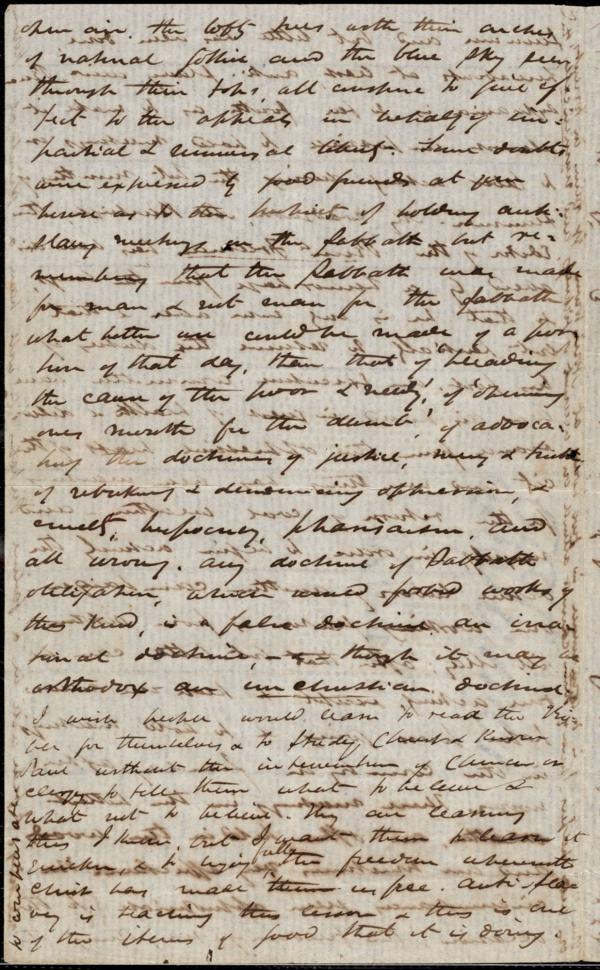 open air. the lofty trees with their arches
of natural Gothic and the blue sky seen
through their tops, all conspire to give ef-
fect to the appeals in behalf of im-
partial & universal liberty. Some doubts
were expressed by good friends at
as to the of holding anti-
slavery meetings on the Sabbath but re-
membering that the Sabbath was made
for man & not man for the Sabbath
what better use could be made of a por-
tion of that day, than that of pleading
the cause of the poor & needy, of opening
ones mouth for the dumb, of advoca-
ting the doctrines of justice, mercy & truth
of rebuking & denouncing oppression, &
cruelty, hypocrisy, pharisaism, and
all wrong. any doctrine of Sabbath
obligation, which would forbid works of
this kind, is a false doctrine. an irra-
tional doctrine, - & though it may be
orthodox an unchristian doctrine.
I wish people would learn to read the Bi-
ble for themselves & to study Christ & know
Paul without the intervention of Church or
clergy to tell them what to believe &
what not to believe. They are learning
this I know, but I want them to learn it
quicker, & to enjoy fully the freedom wherewith
Christ has made them free. Anti-slav-
ery is teaching this lesson & this is one
of the items of good that it is doing.